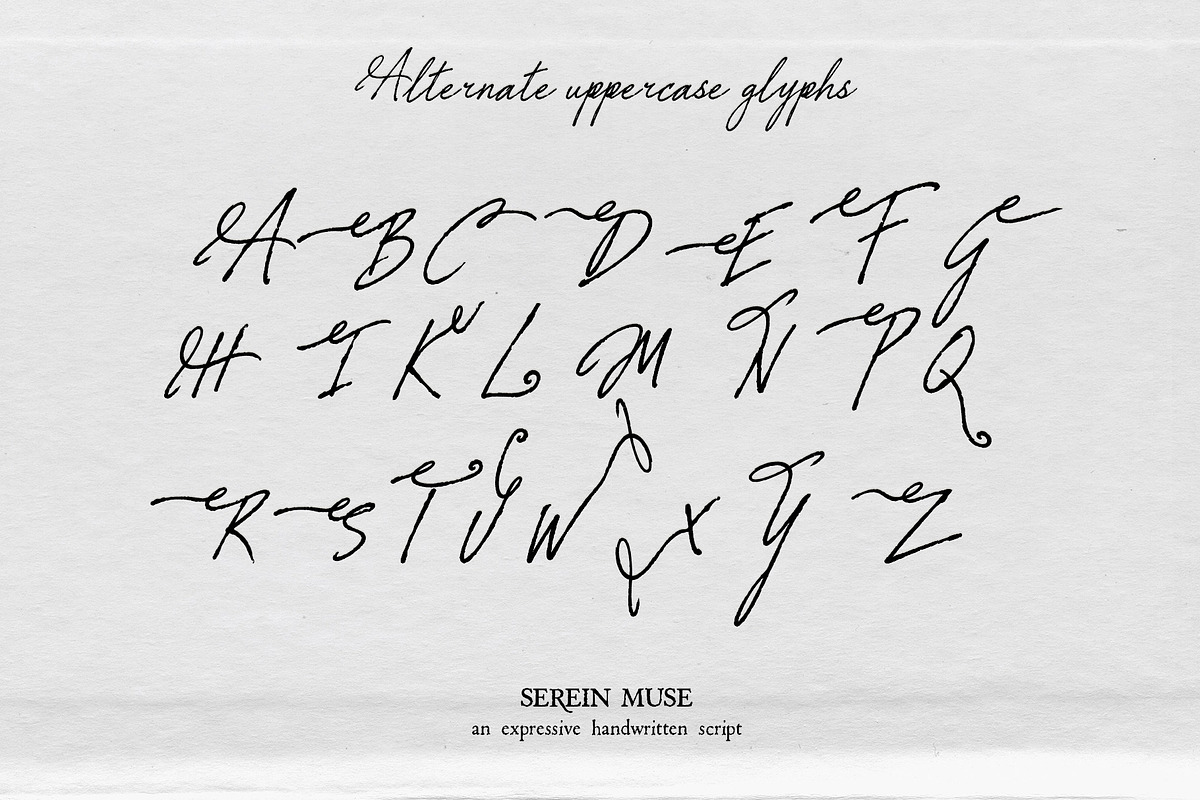 Alternate uppercase glyphs
A B C D E F G
H I K L M N P Q
R S T U W X Y Z
SEREIN MUSE
an expressive handwritten script